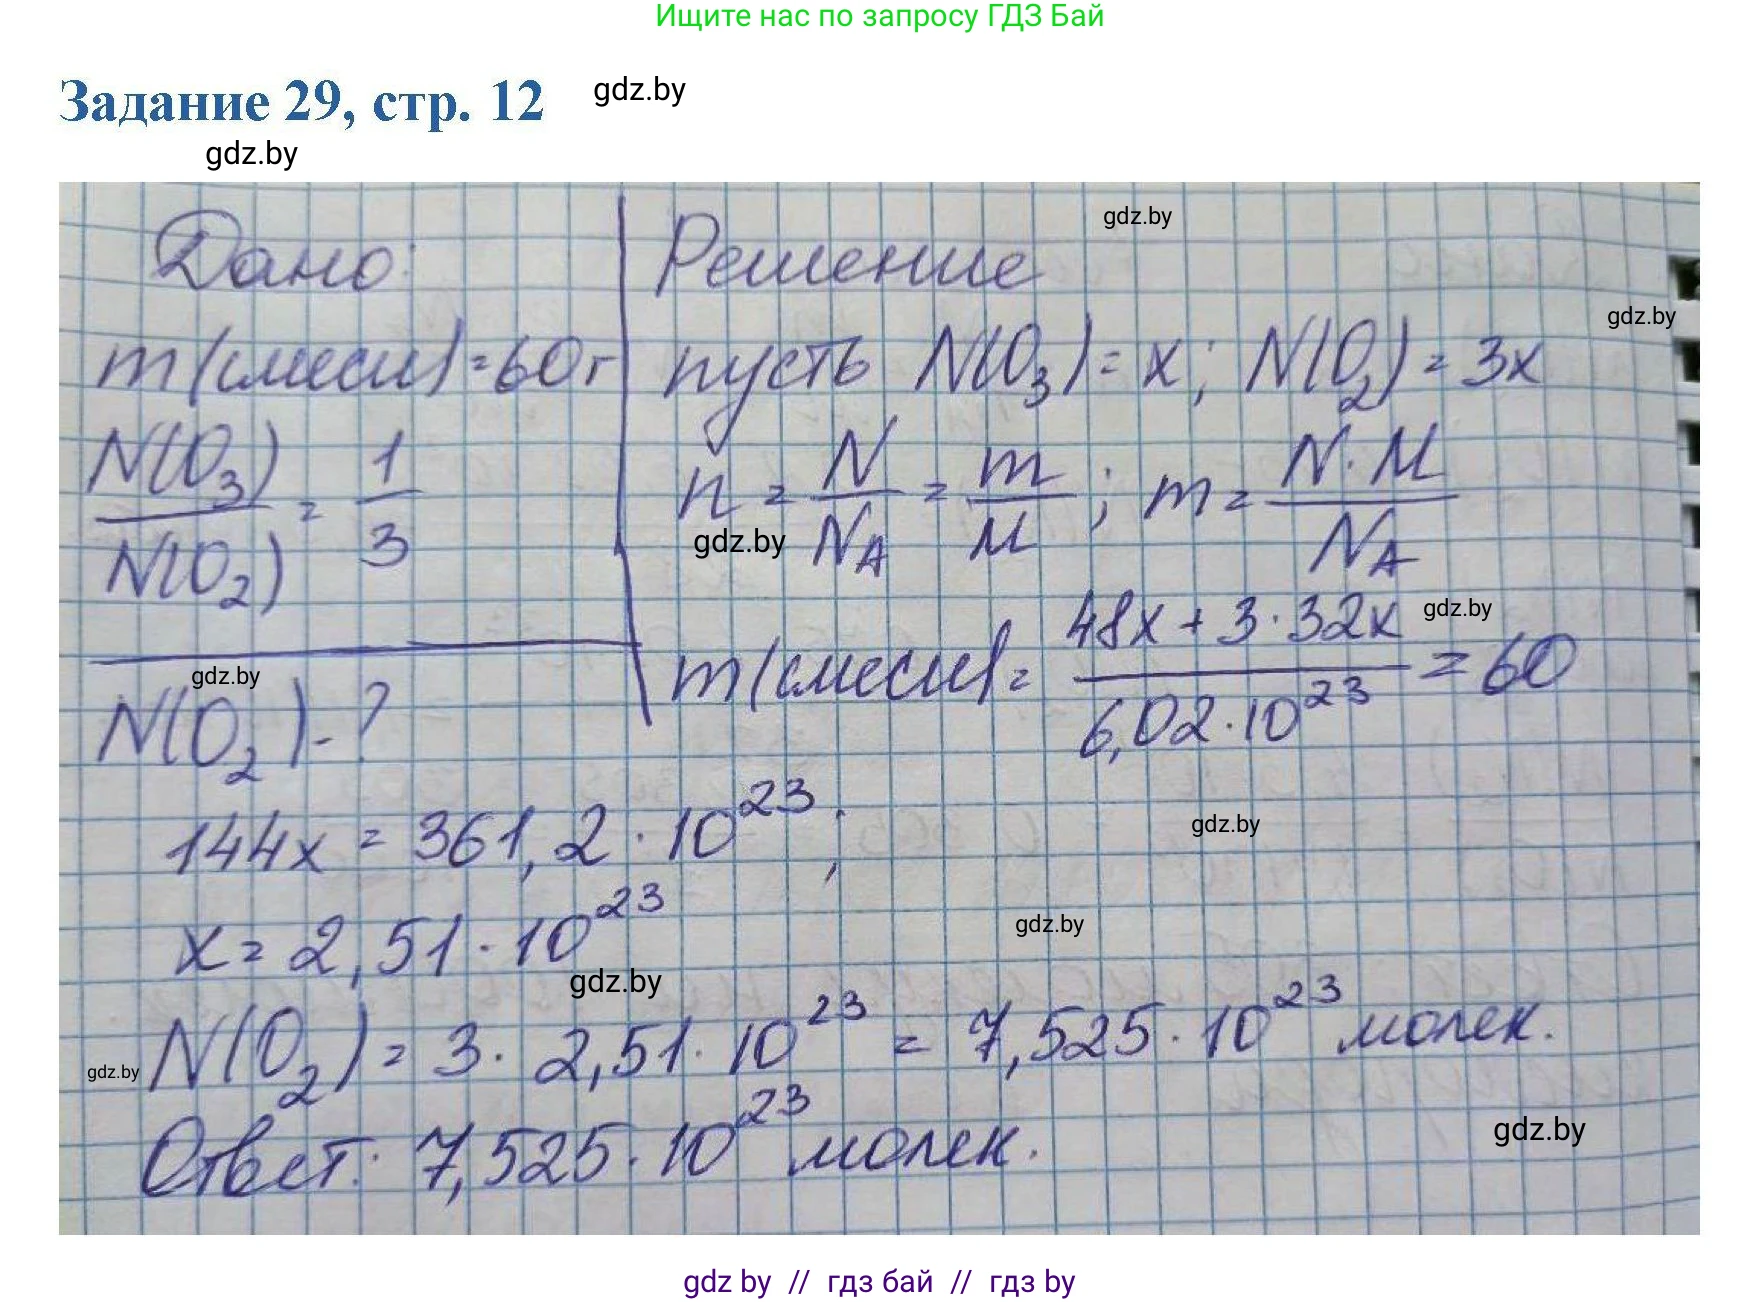 Ищите нас по запросу ГДЗ Бай
Задание 29, стр. 12
gdz.by
gdz.by
Дано:
m(смеси)=60г
N(O₃)/N(O₂) = 1/3
gdz.by
N(O₂)-?
Решение
gdz.by
gdz.by
пусть N(O₃)=x; N(O₂)=3x
n = N/N_A = m/M; m = N·M/N_A
gdz.by
gdz.by
m(смеси)= 48x + 3·32x / 6,02·10²³ = 60
144x = 361,2·10²³;
gdz.by
x = 2,51·10²³
gdz.by
gdz.by
N(O₂) = 3·2,51·10²³ = 7,525·10²³ молек.
gdz.by
Ответ: 7,525·10²³ молек.
gdz.by
gdz by // гдз бай // гдз by